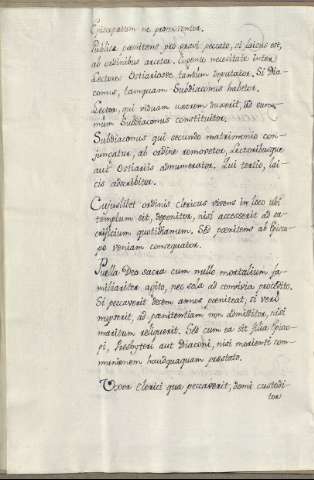 Episcoporum ne promoventor.
Publice pœnitens pro gravi peccato, si laicus est,
ab ordinibus arcetor. Urgente necessitate inter
Lectores Ostiariosve tantum deputator. Si Dia-
conus, tamquam Subdiaconus habetor.
Lector, qui viduam uxorem duxerit, ad
mum Subdiaconus constituitor.
Subdiaconus qui secundo matrimonio con-
jungatur, ab ordine removetor, Lectoribusque
aut Ostiariis adnumerator. Qui tertio, lai-
cis adscribitor.
Cujuslibet ordinis clericus vivens in loco ubi
templum sit, deponitor, nisi accesserit ad sa-
crificium quotidianum. Sed pœnitens ab Episco-
po veniam consequator.
Puella Deo sacra cum nullo mortalium fa-
miliariter agito, nec sola ad convivia procedito.
Si peccaverit decem annos pœniteat, si vero
nupserit, ad pœnitentiam non admittitor, nisi
maritum reliquerit. Sed cum ea sit filia Episco-
pi, Presbyteri aut Diaconi, nisi morienti com-
munionem haudquaquam prestato.
Uxor clerici quæ peccaverit, domi custodi-
tor